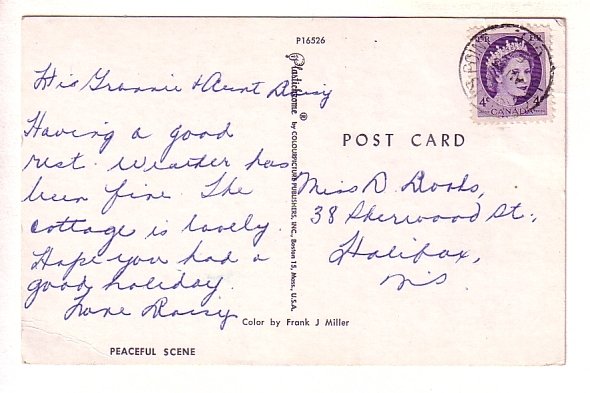 P16526
Plastichrome ® by COLOURPICTURE PUBLISHERS, INC., Boston 15, Mass., U.S.A.
4¢ 4¢
CANADA
POST CARD
His Grannie & Aunt Daisy
Having a good
rest. Weather has
been fine. The
cottage is lovely.
Hope you had a
good holiday.
Love Daisy
Miss D. Books,
38 Sherwood St.,
Halifax,
N.S.
Color by Frank J Miller
PEACEFUL SCENE